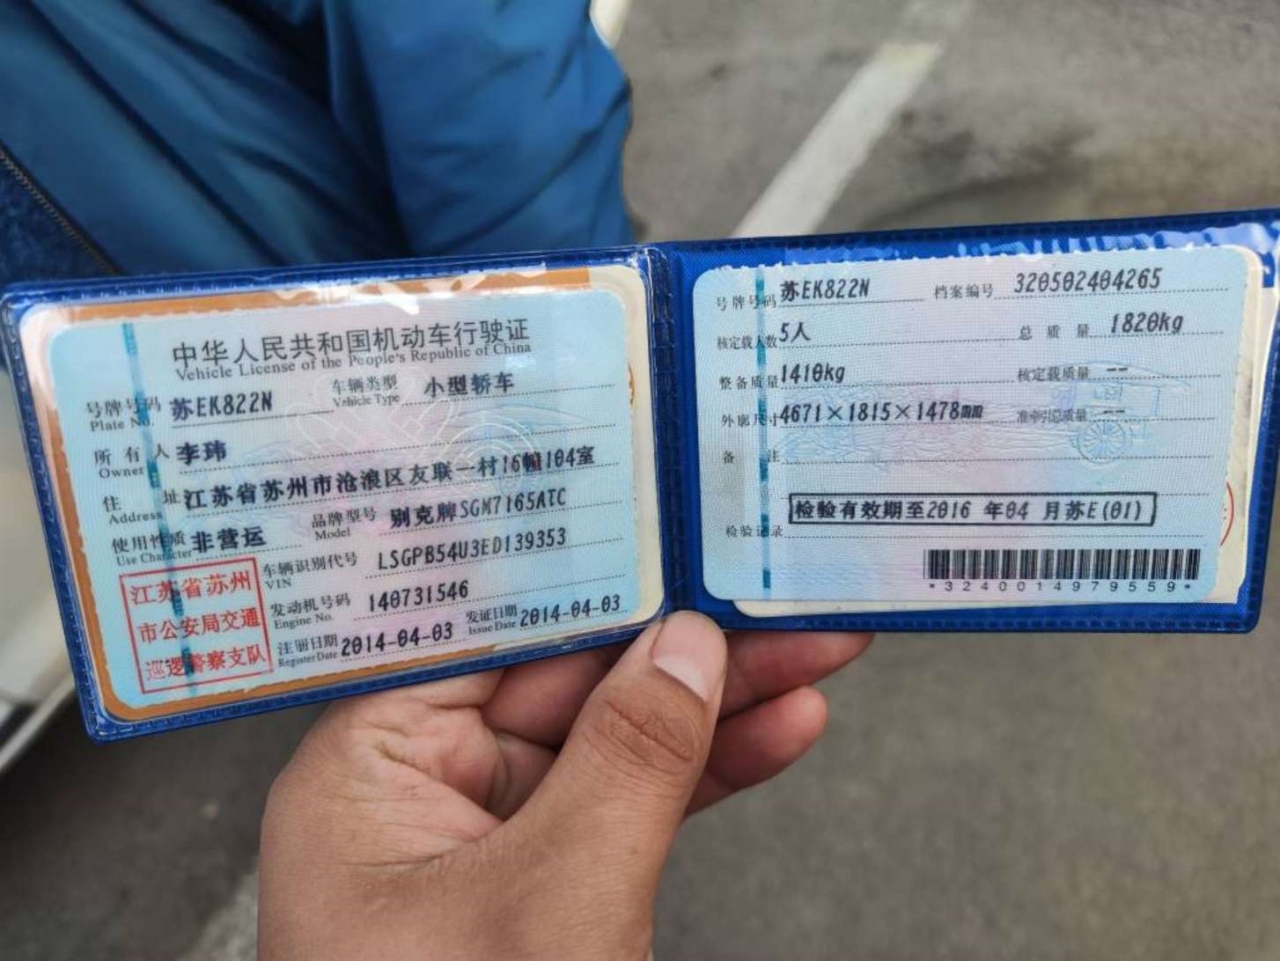 中华人民共和国机动车行驶证
Vehicle License of the People's Republic of China
号牌号码 苏EK822N 车辆类型 小型轿车
Plate No. Vehicle Type
所有人 李玮
Owner
住址 江苏省苏州市沧浪区友联一村16幢104室
Address
使用性质 非营运 品牌型号 别克牌SGM7165ATC
Use Character Model
车辆识别代号 LSGPB54U3ED139353
VIN
发动机号码 140731546
Engine No.
注册日期 2014-04-03 发证日期 2014-04-03
Register Date Issue Date
江苏省苏州
市公安局交通
巡逻警察支队
号牌号码 苏EK822N 档案编号 320502404265
核定载人数 5人 总质量 1820kg
整备质量 1410kg 核定载质量 --
外廓尺寸 4671×1815×1478mm 准牵引总质量 --
备注
检验记录 检验有效期至2016年04月苏E(01)
*3240014979559*